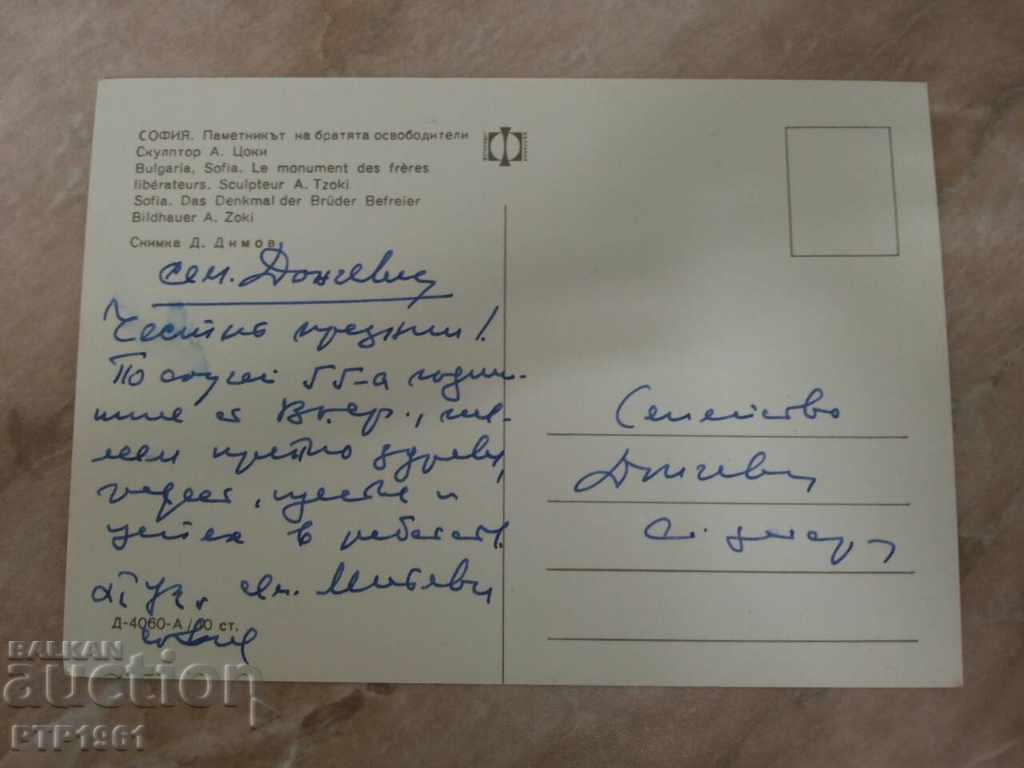 СОФИЯ. Паметникът на братята освободители
Скулптор А. Цоки
Bulgaria, Sofia. Le monument des frères
libérateurs. Sculpteur A. Tzoki
Sofia. Das Denkmal der Brüder Befreier
Bildhauer A. Zoki
Снимка Д. Димов
сем. Дончеви
Честит празник!
По случай 55-а годиш-
В. ср., же-
лаем крепко здраве,
радост, щастие и
успех в работата.
сем. Митеви
София
Д-4060-А/00 ст.
Семейство
Дончеви
BALKAN
auction
PTP1961